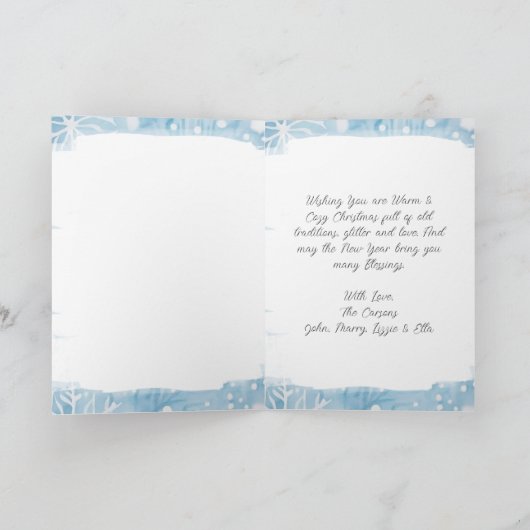 Wishing You are Warm &
Cozy Christmas full of old
traditions, glitter and love. And
may the New Year bring you
many Blessings.
With Love,
The Carsons
John, Marry, Lizzie & Ella